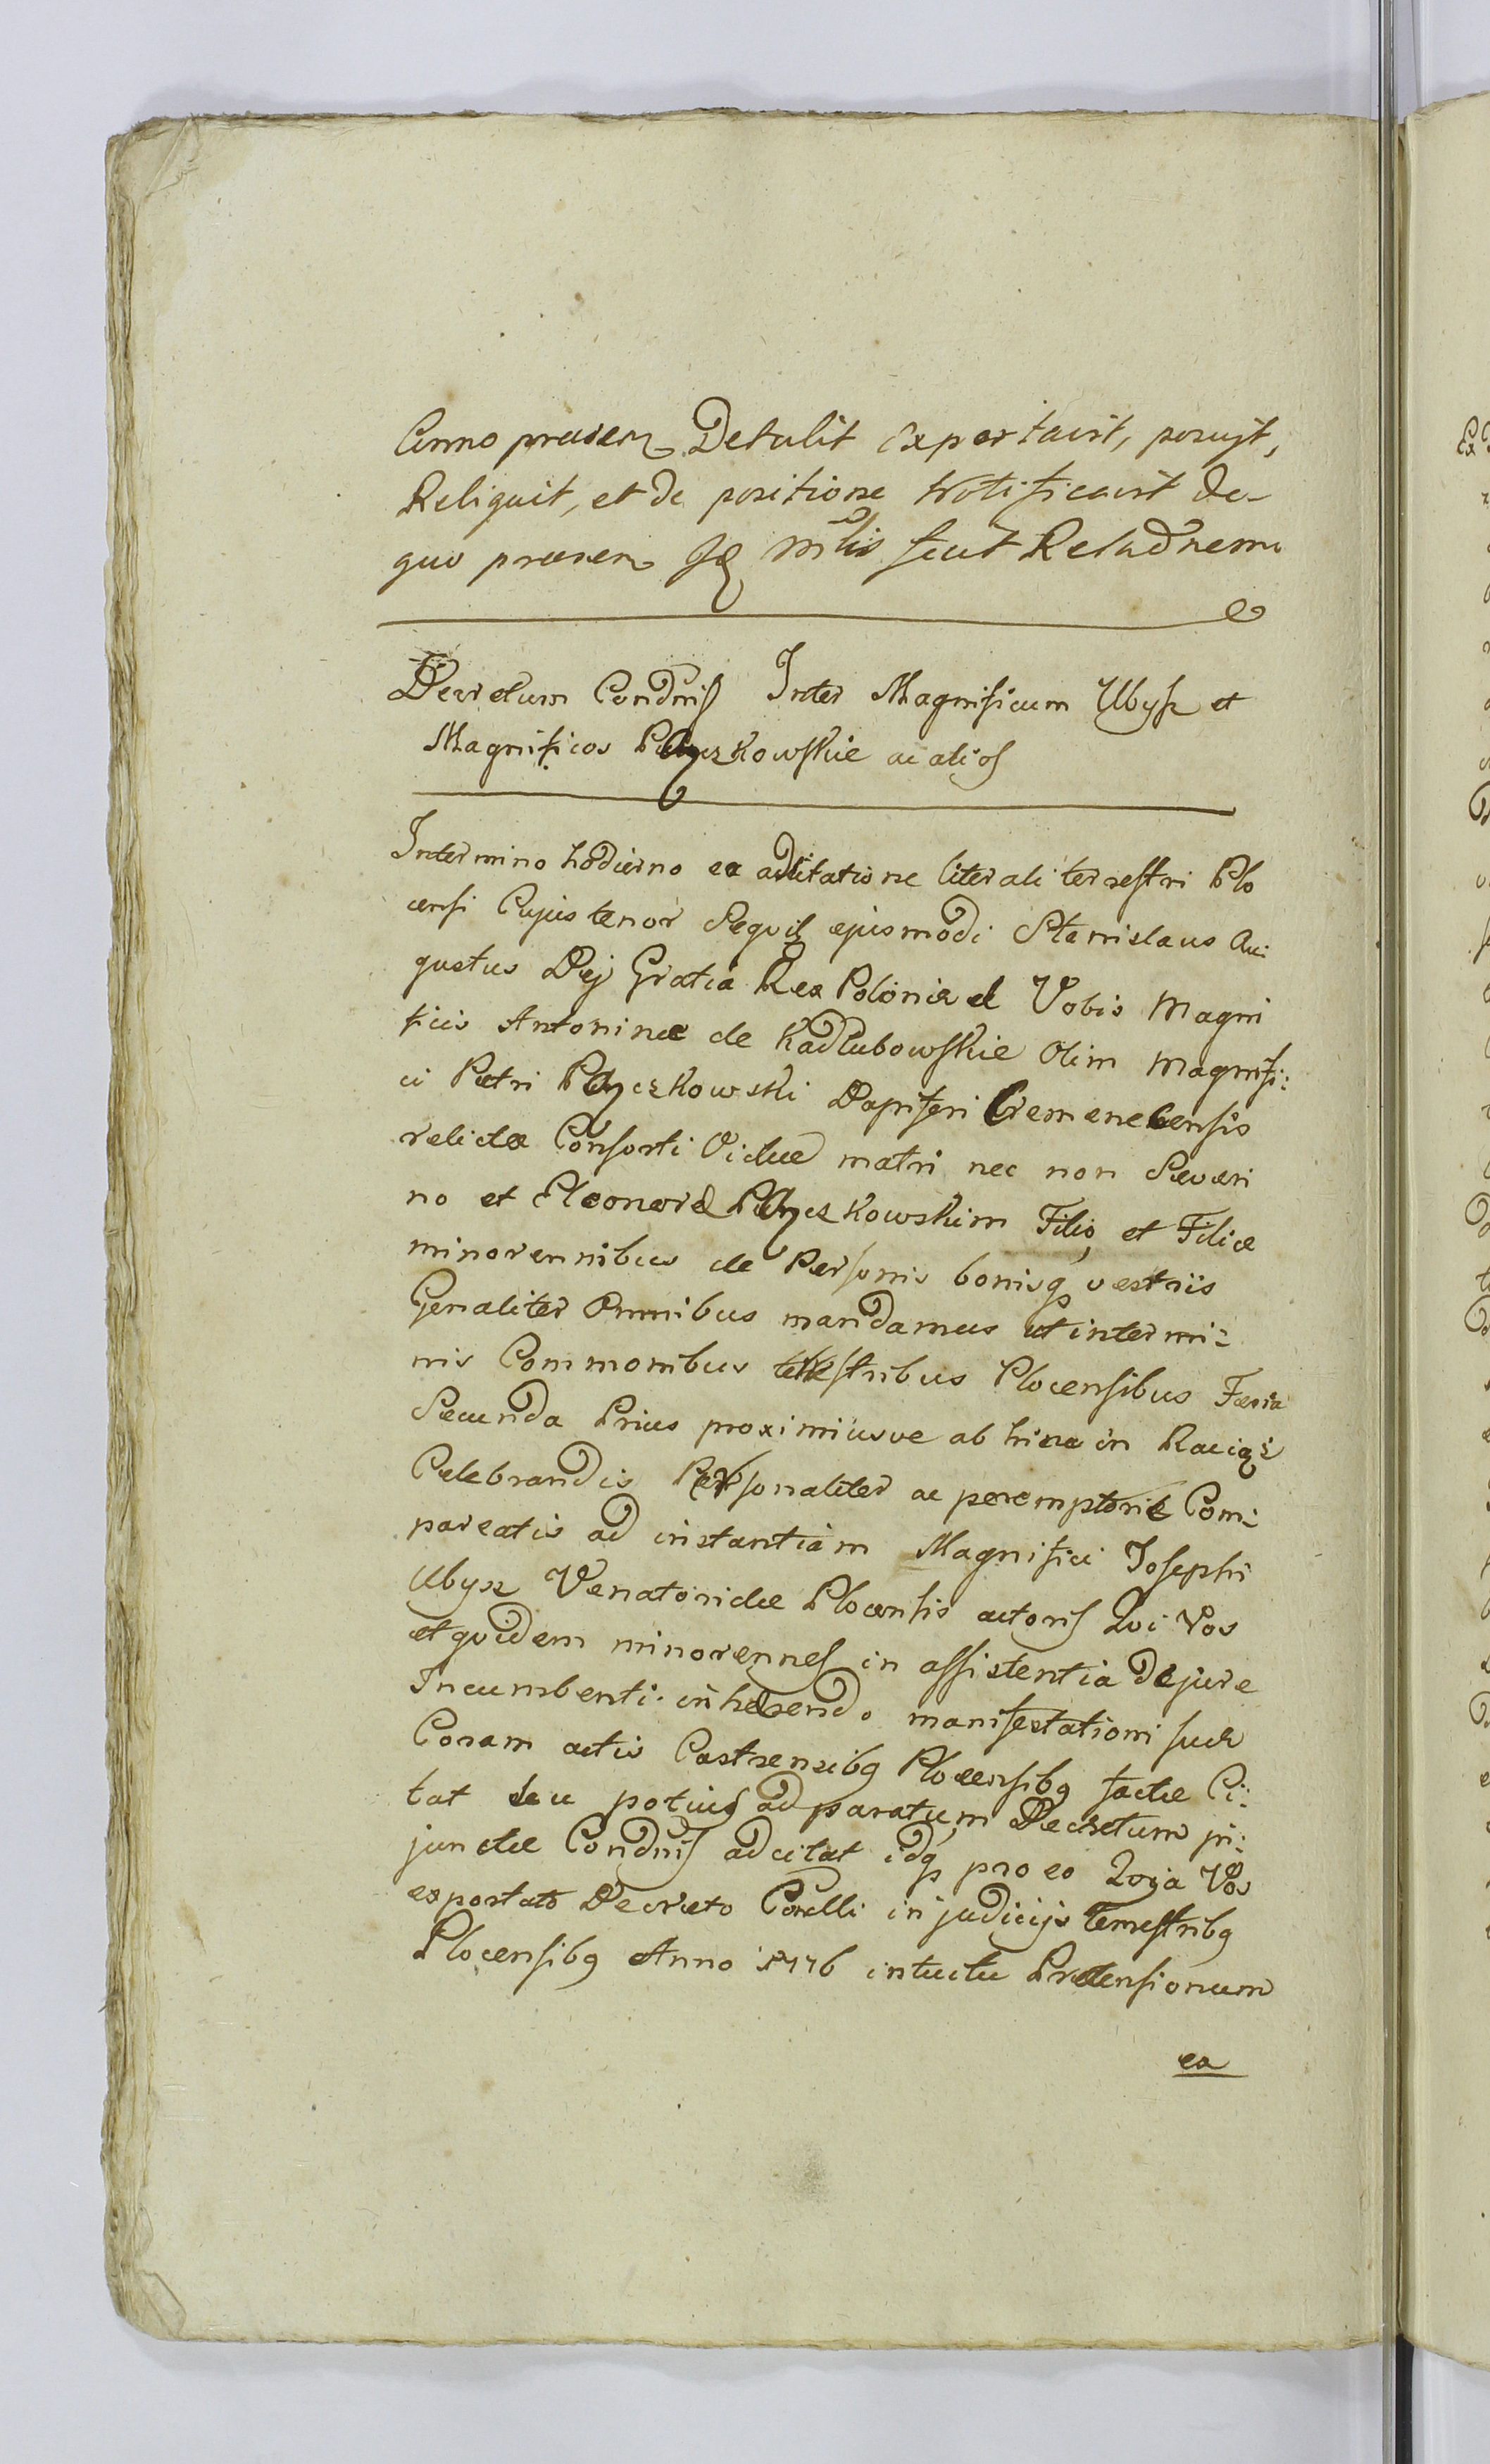 Anno præsen Detulit exportavit, posuyt,
Reliquit, et de positione Notificavit De-
quo præsen Mlis fecit Relaōnem
Decretum Condnis Inter Magnificum Ubysz et
Magnificos Pączkowskie ac alios
Intermino hodierno ex adcitatione literali terrestri Plo
censi Cujus tenor sequit ejusmodi Stanislaus Au:
gustus Dej Gratia Rex Poloniæ et Vobis Magni
ficis Antoninæ de Kadlubowskie Olim Magnifi:
ci Petri Pączkowski Dapiferi Cremenecensis
relictæ Consorti Viduæ matri nec non Severi
no et Eleonoræ Pączkowskim Filio, et Filiæ
minorennibus de Personis bonisq vestris
Genaliter Omnibus mandamus ut intermi:
nis Commonibus terrestribus Plocensibus Feria
Secunda Prius proximiusve ab hinc in Raciąż
Celebrandis Personaliter ac peremptorie Com:
pareatis ad instantiam Magnifici Josephi
Ubysz Venatoridæ Plocensis actoris Qui Vos
et quidem minorennes in assistentia Dejure
Incumbenti inhærendo manifestationi suæ
Coram actis Castrensibq Plocensibq factæ Ci:
tat seu potius ad paratum Decretum in:
junctæ Condnis adcitat idq pro eo Quia Vos
exportato Decreto Condli in judicijs terrestribq
Plocensibq Anno 1776 intuitu Prætensionum
ex